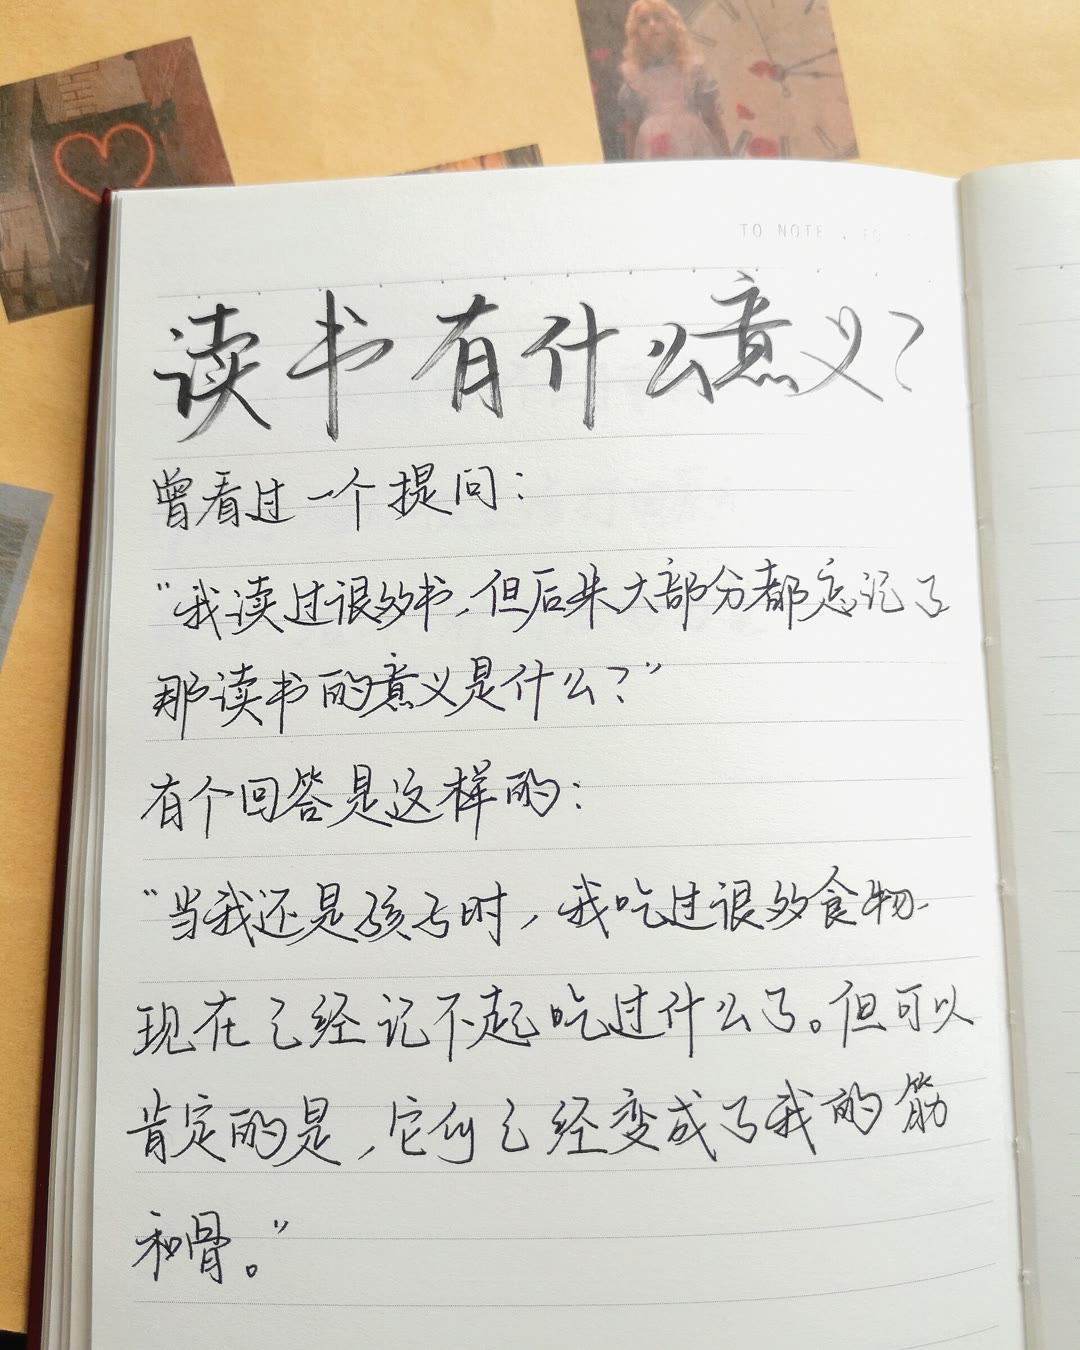 TO NOTE
读书有什么意义?
曾看过一个提问:
“我读过很多书,但后来大部分都忘记了
那读书的意义是什么?”
有个回答是这样的:
“当我还是孩子时,我吃过很多食物.
现在已经记不起吃过什么了。但可以
肯定的是,它们已经变成了我的筋
和骨。”